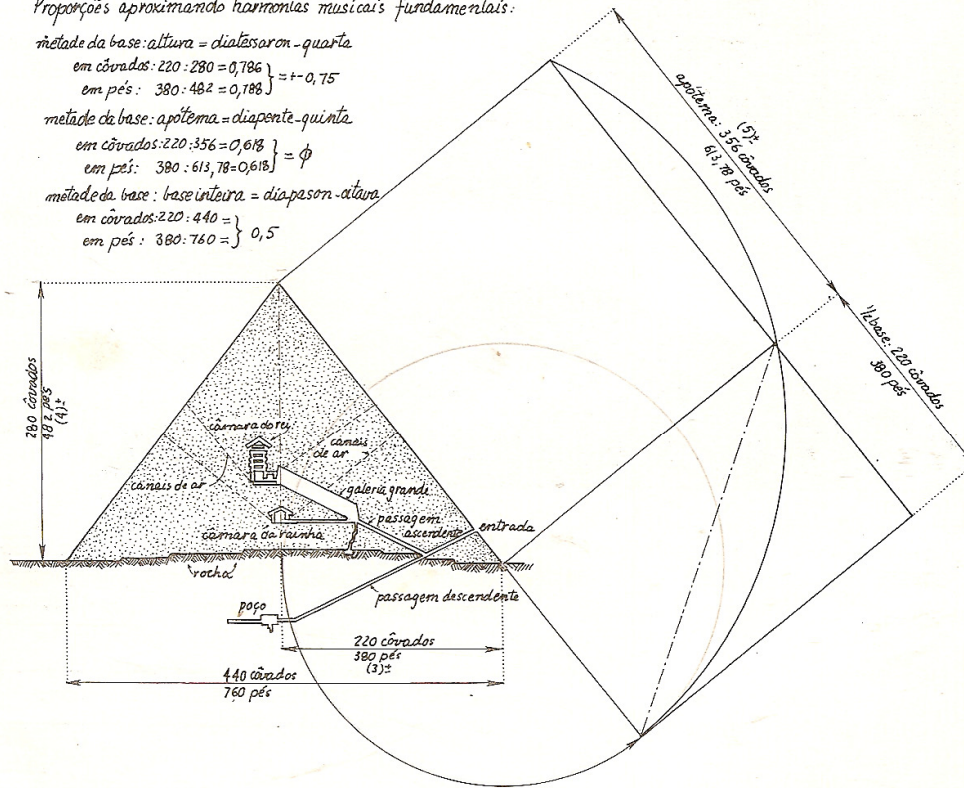 Proporções aproximando harmonias musicais fundamentais:
metade da base:altura = diatessaron-quarta
em côvados: 220 : 280 = 0,786
em pés: 380 : 482 = 0,788
} = +- 0,75
metade da base: apótema = diapente-quinta
em côvados: 220 : 356 = 0,618
em pés: 380 : 613,78 = 0,618
} = ϕ
metade da base : base inteira = diapason-oitava
em côvados: 220 : 440 =
em pés : 380 : 760 =
} 0,5
apótema: 356 côvados
613,78 pés
(5)±
1/2 base: 220 côvados
380 pés
280 côvados
482 pés
(4)±
câmara do rei
canais
de ar
canais de ar
galeria grande
passagem
ascendente
entrada
câmara da rainha
rocha
passagem descendente
poço
220 côvados
380 pés
(3)±
440 côvados
760 pés